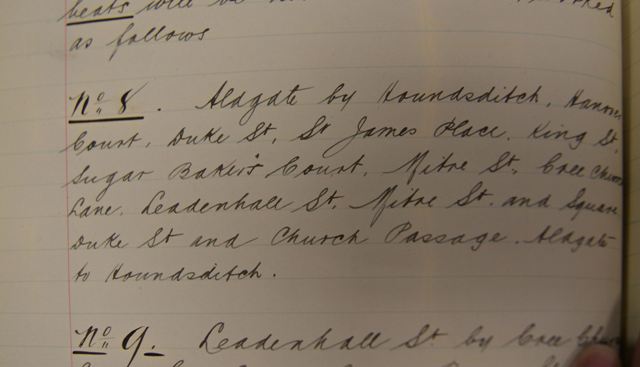 beats will be
as follows
No. 8. Aldgate by Houndsditch, Hanover
Court, Duke St, St James Place, King St,
Sugar Baker's Court, Mitre St, Cree Church
Lane, Leadenhall St, Mitre St. and Square
Duke St and Church Passage. Aldgate
to Houndsditch.
No. 9. Leadenhall St by Cree Church